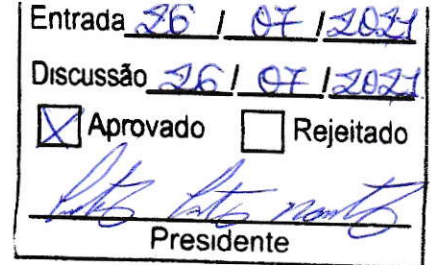 Entrada 26 / 07 / 2021
Discussão 26 / 07 / 2021
☒ Aprovado ☐ Rejeitado
Presidente